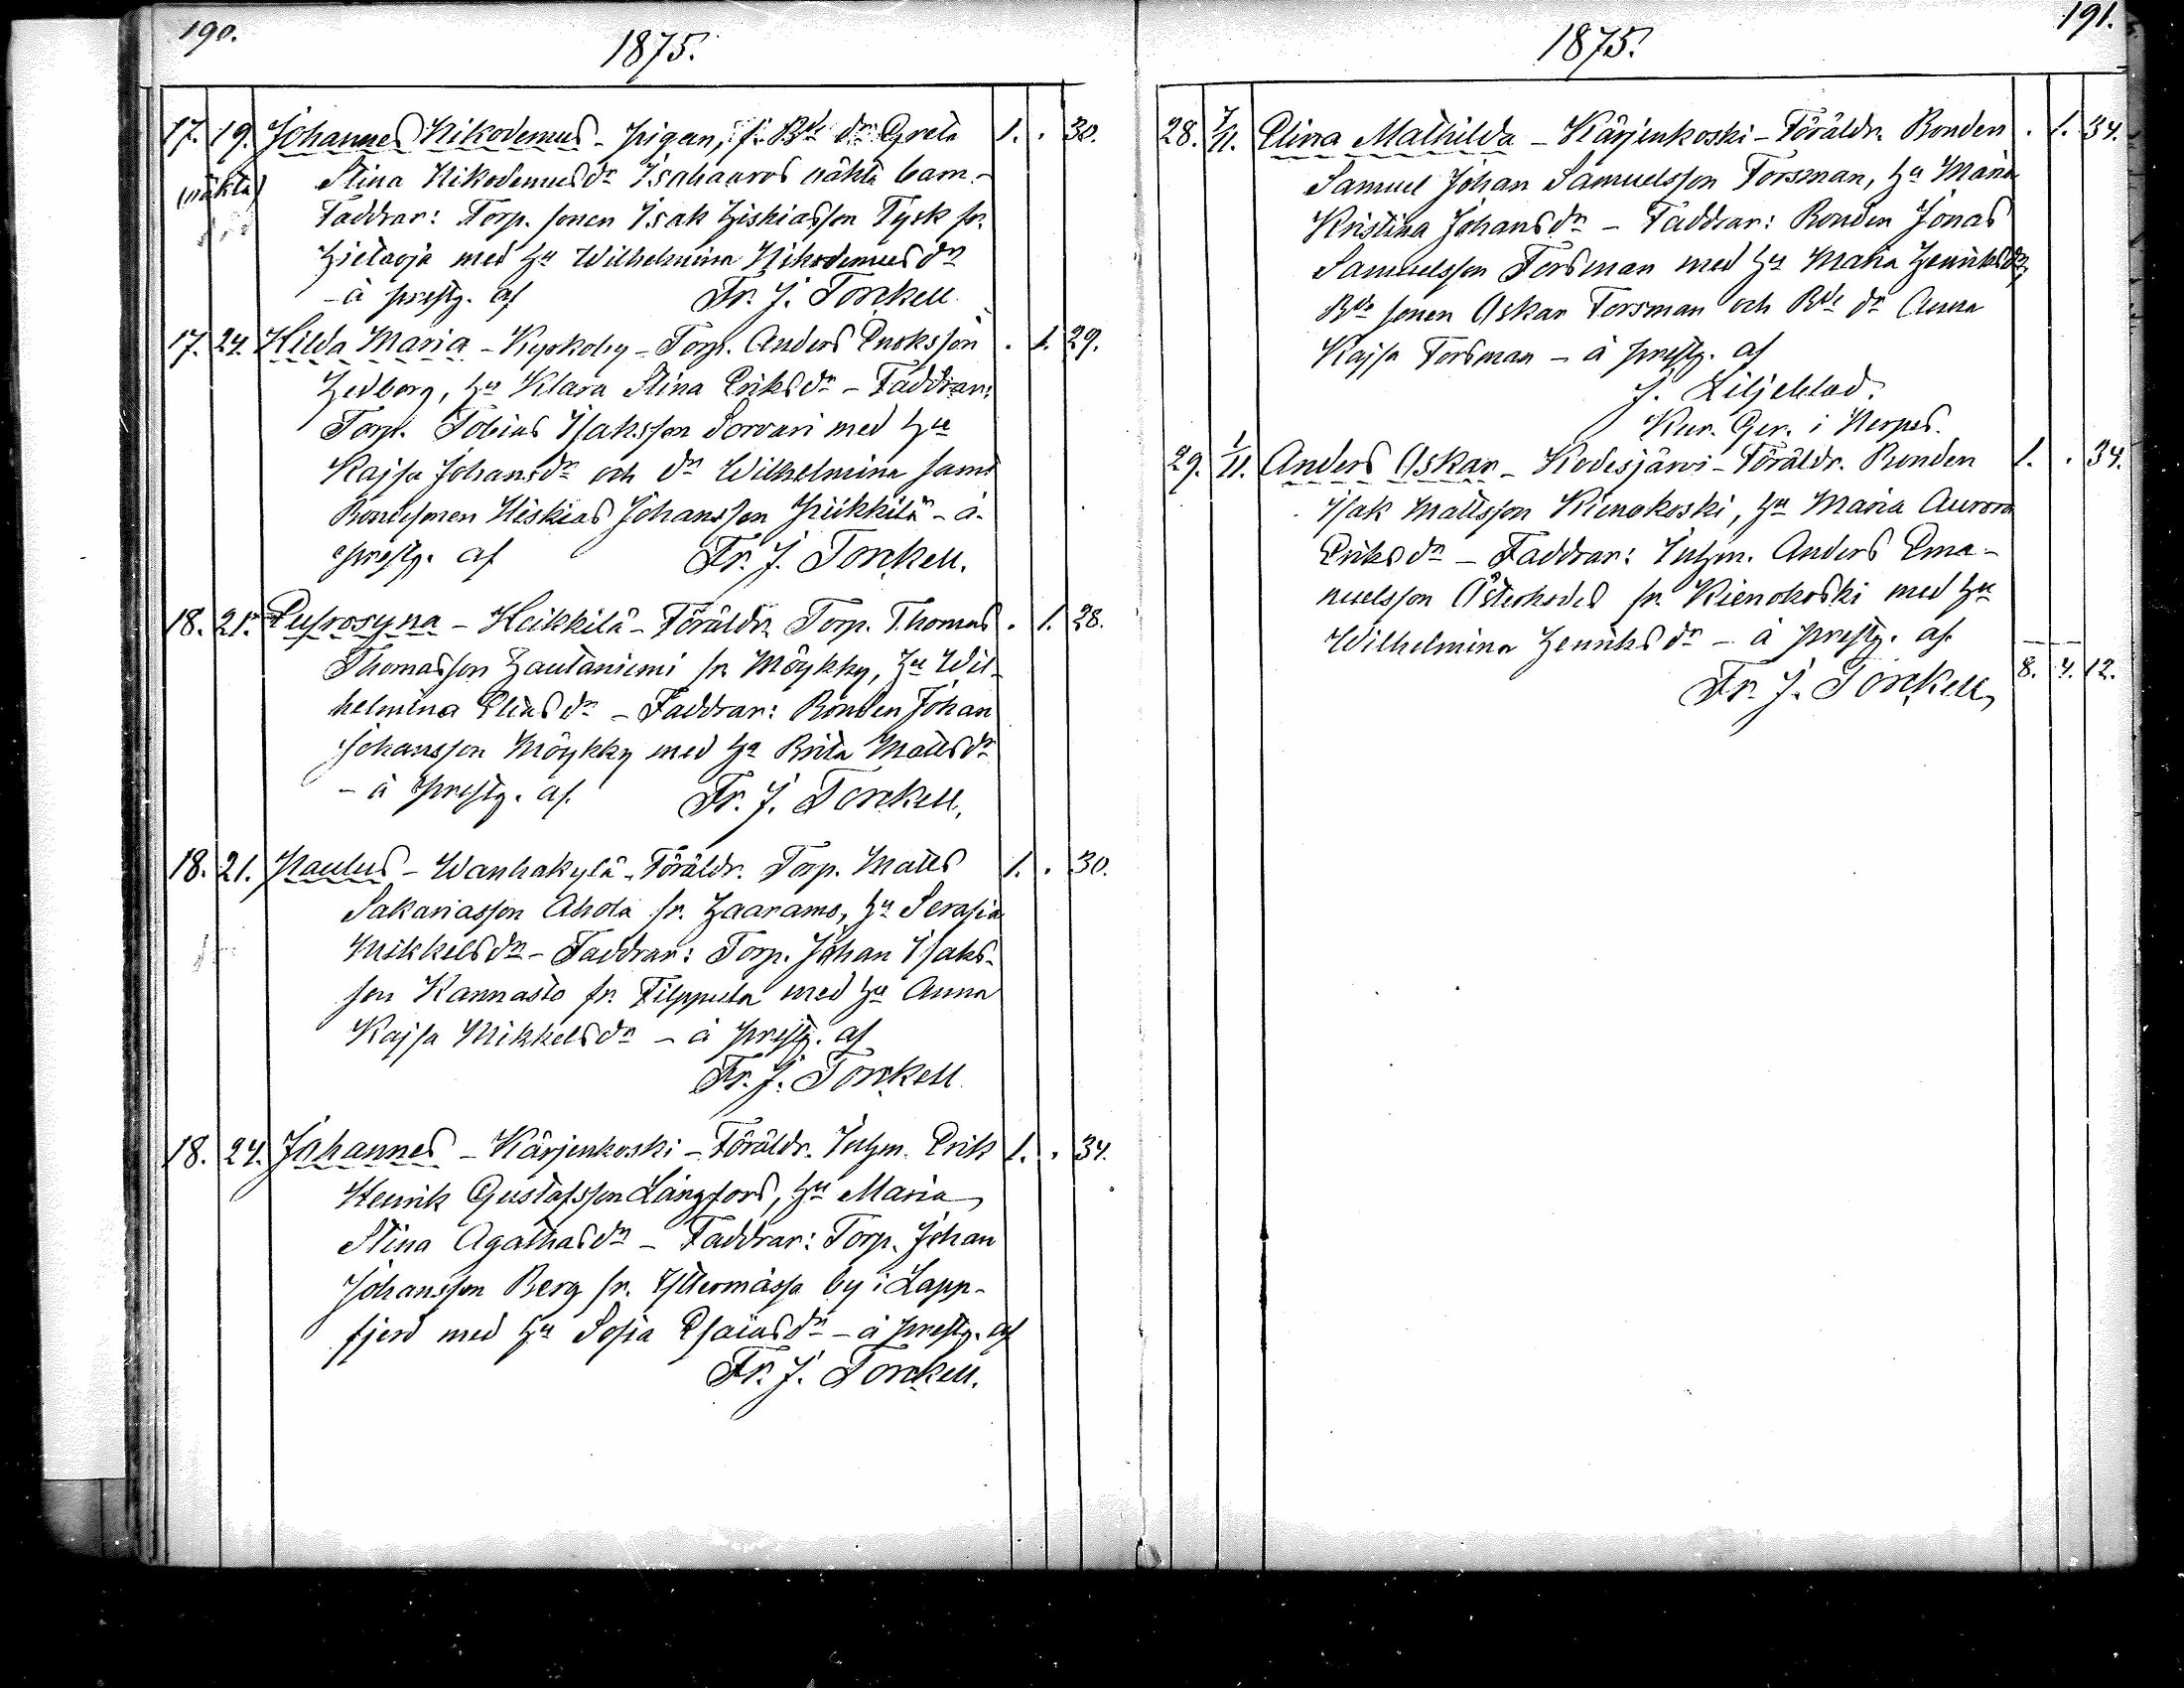 190.
1875.
17. 19. Johannes Nikodemus - pigan, f. Bde dr Greta 1. . 30.
(oäkta) Stina Nikodemusdr Isahauros oäkta barn. -
Faddrar: Torp. sonen Isak Hiskiasson Tysk fr.
Hietaoja med Hu Wilhelmina Nikodemusdr
- à prestg. af Fr. J. Torckell
17. 24. Hilda Maria - Kyrkoby - Torp. Anders Enoksson . 1. 29.
Hedborg, Hu Klara Stina Eriksdr - Faddrar:
Torp. Tobias Isaksson Sorvari med Hu
Kajsa Johansdr och dr Wilhelmina samt
Bondesonen Hiskias Johansson Piikkilä - à
prestg. af Fr. J. Torckell.
18. 21. Eufrosyna - Heikkilä - Föräldr. Torp. Thomas . 1. 28.
Thomasson Hautaniemi fr. Möykky, Hu Wil-
helmina Eliasdr - Faddrar: Bonden Johan
Johansson Möykky med Hu Brita Mattsdr
- à prestg. af. Fr. J. Torckell.
18. 21. Paulus - Wanhakylä - Föräldr. Torp. Matts 1. . 30.
Sakariasson Ahola fr. Haaramo, Hu Serafia
Mikkelsdr - Faddrar: Torp. Johan Isaks-
son Kannasto fr. Filppula med Hu Anna
Kajsa Mikkelsdr - à prestg. af
Fr. J. Torckell
18. 24. Johannes - Kärjenkoski - Föräldr. Inhm. Erik 1. . 34.
Henrik Gustafsson Långfors, Hu Maria
Stina Agathasdr - Faddrar: Torp. Johan
Johansson Berg fr. Yttermässa by i Lapp-
fjerd med Hu Sofia Esaiasdr - à prestg. af
Fr. J. Torckell.
191.
1875.
28. 7/11. Elina Mathilda - Kärjenkoski - Föräldr. Bonden . 1. 34.
Samuel Johan Samuelsson Forsman, Hu Maria
Kristina Johansdr - Faddrar: Bonden Jonas
Samuelsson Forsman med Hu Maria Henriksdr,
Bde sonen Oskar Forsman och Bde dr Anna
Kajsa Forsman - à prestg. af
J. Liljeblad.
Kur. Ger. i Nerpes.
29. 1/11. Anders Oskar - Kodesjärvi - Föräldr. Bonden 1. . 34.
Isak Mattsson Rienokoski, Hu Maria Aurora
Eriksdr - Faddrar: Inhm. Anders Ema-
nuelsson Österhodes fr. Rienokoski med Hu
Wilhelmina Henriksdr - à prestg. af.
Fr. J. Torckell 8. 4. 12.